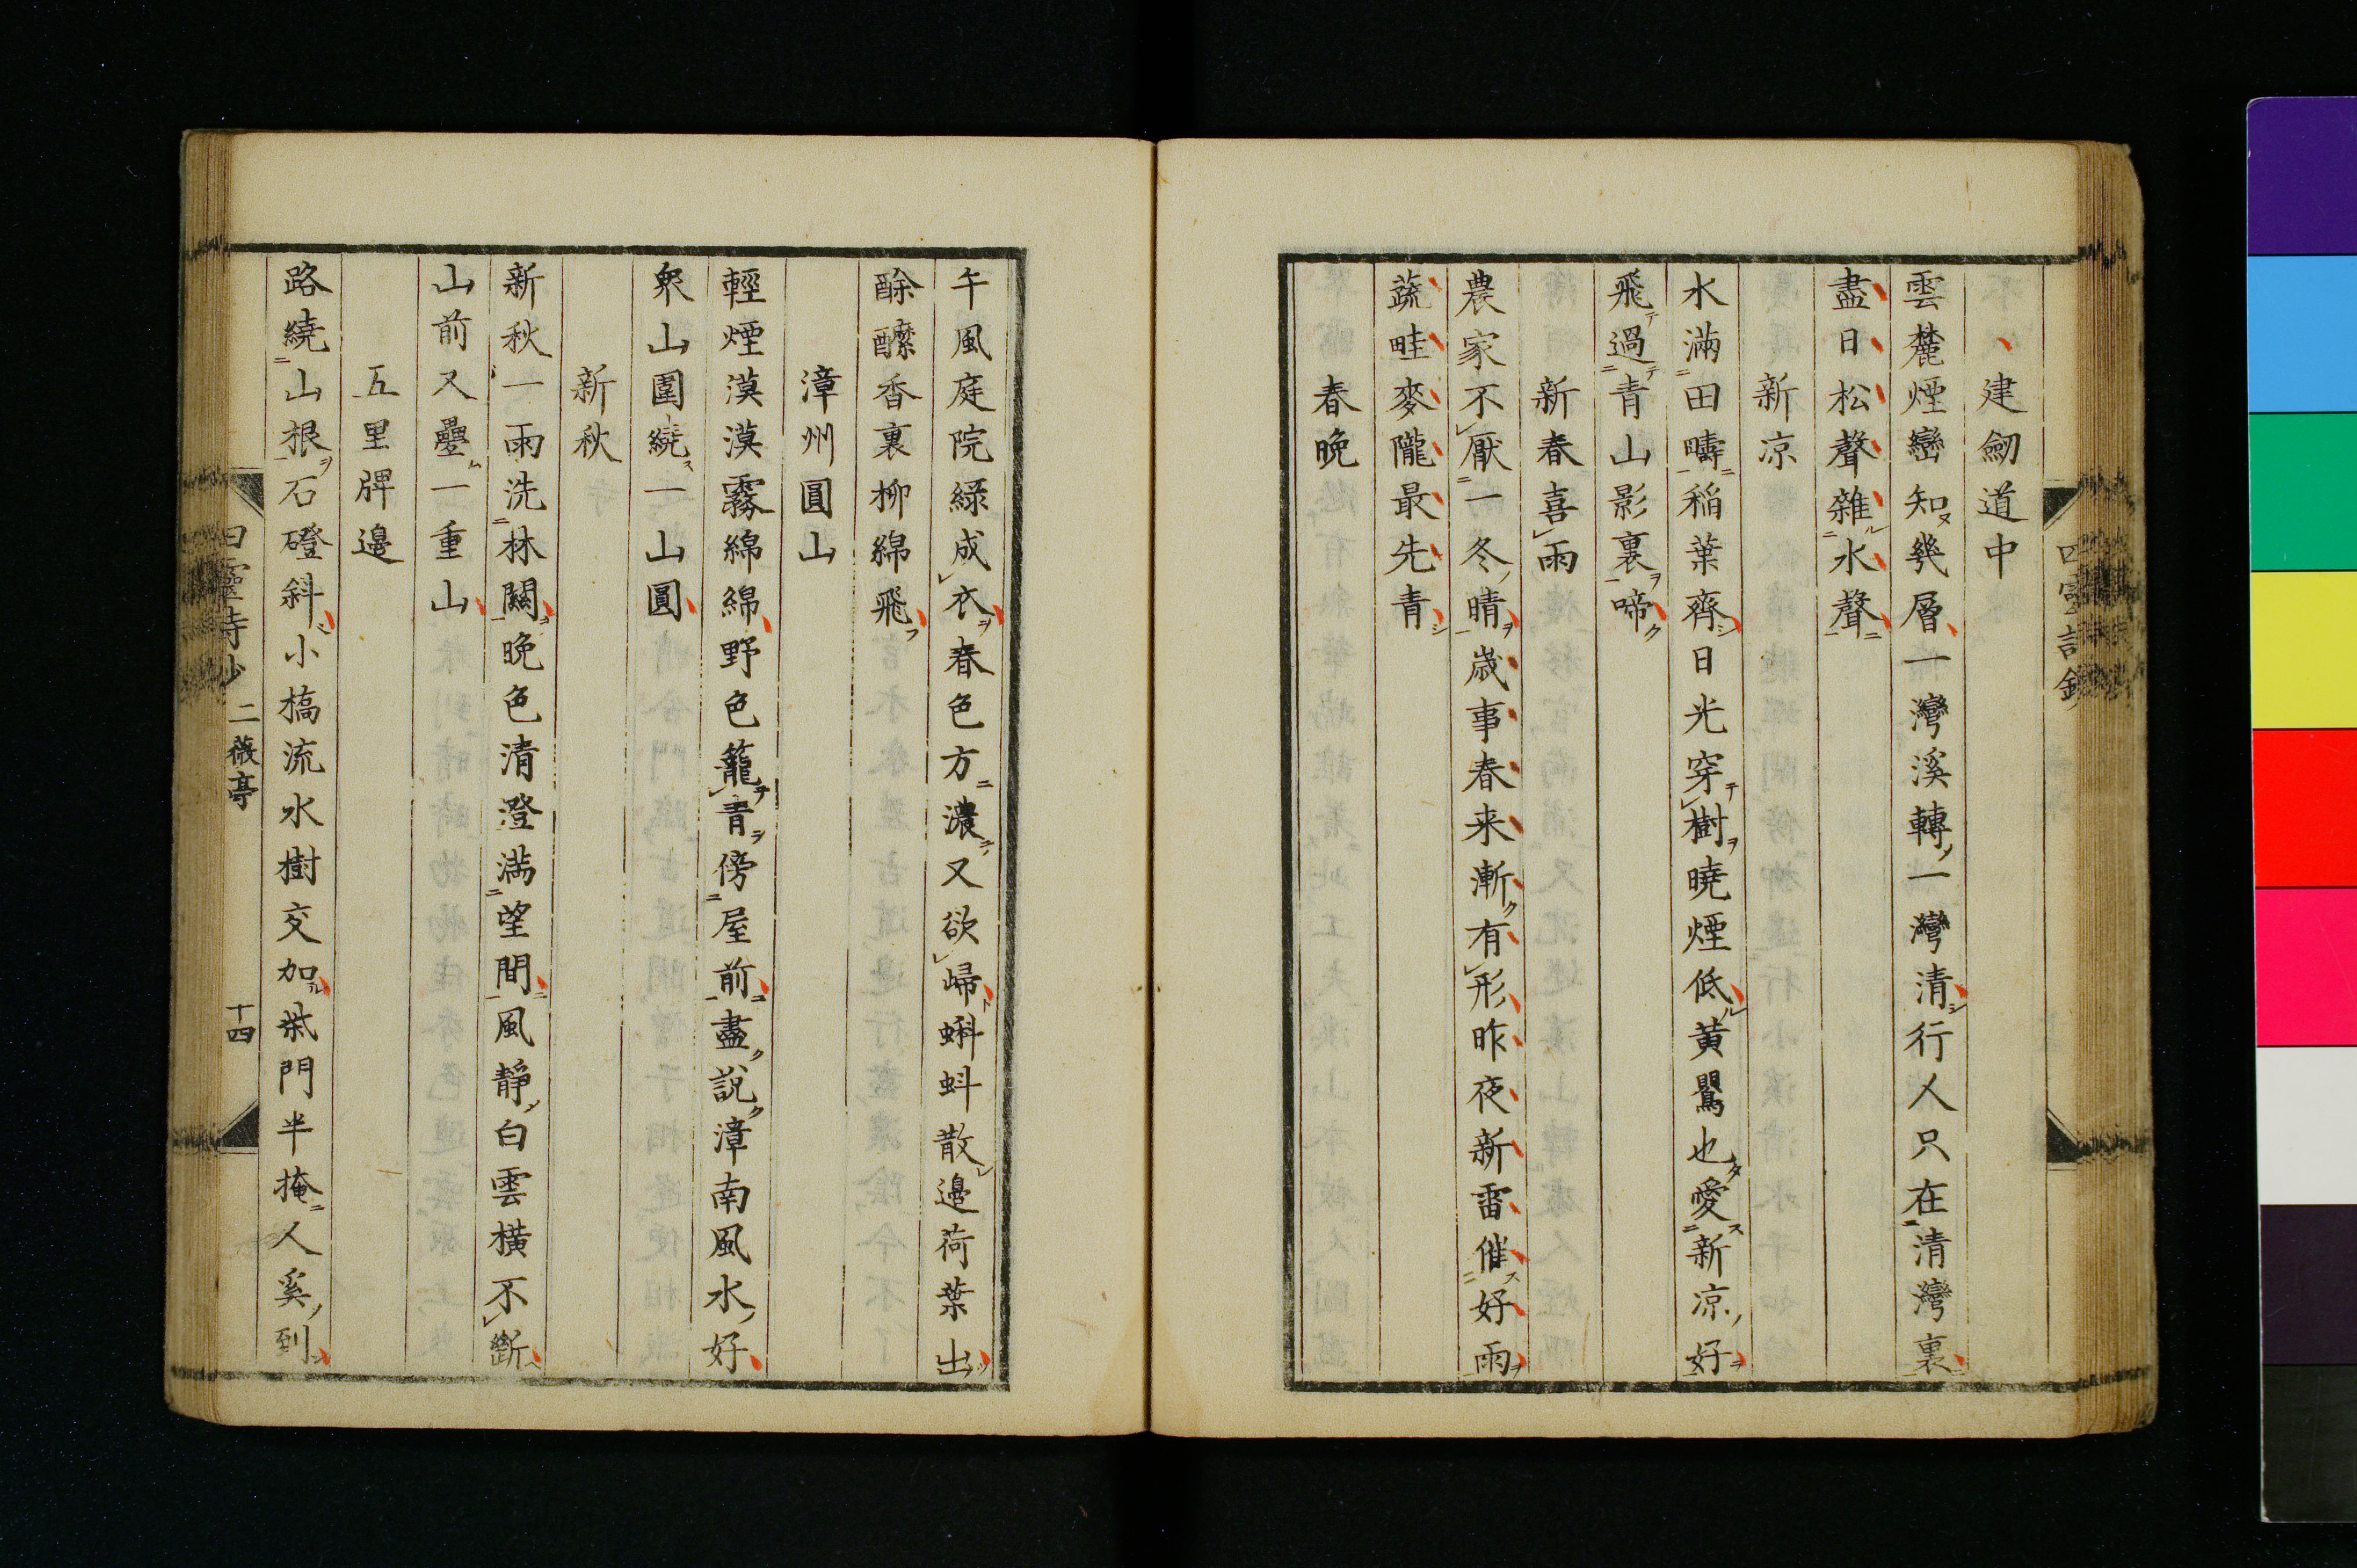 建劒道中
雲麓煙巒知幾層一灣溪轉一灣清行人只在清灣裏
盡日松聲雜水聲
新凉
水滿田疇稲葉齊日光穿樹曉煙低黄鸎也愛新凉好
飛過青山影裏啼
新春喜雨
農家不厭一冬晴歳事春来漸有形昨夜新雷催好雨
蔬畦麥隴最先青
春晚
午風庭院緑成衣春色方濃又欲歸蝌蚪散邊荷葉出
酴醾香裏柳綿飛
漳州圓山
輕煙漠漠霧綿綿野色籠青傍屋前盡說漳南風水好
衆山圍繞一山圓
新秋
新秋一雨洗林闗晚色清澄満望間風靜白雲横不斷
山前又疊一重山
五里牌邊
路繞山根石磴斜小橋流水樹交加柴門半掩人奚到
四靈詩鈔 二薇亭 十四